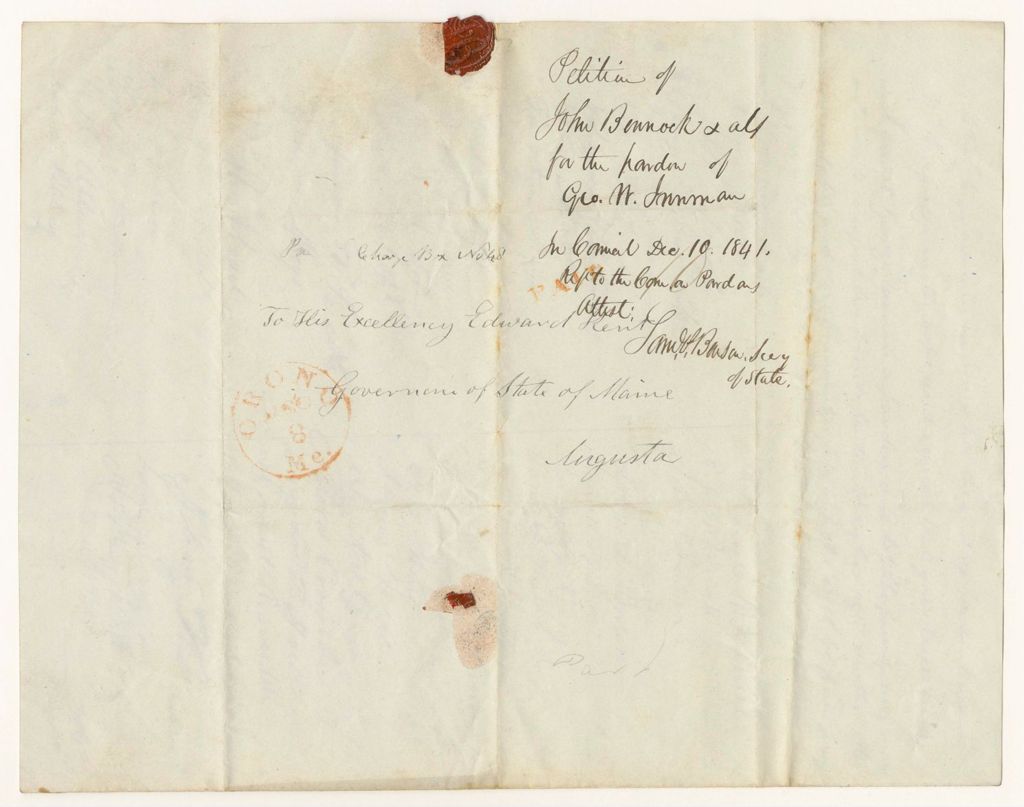 Petition of
John Bennock & als
for the pardon of
Geo. W. Inman
In Council Dec. 10. 1841.
Ref to the Com. on Pardons
Attest:
Saml. P. Benson. Secy
of State.
Charge Box No 48
PAID
To His Excellency Edward Kent
Governor of State of Maine
Augusta
ORONO
DEC
8
Me.
Paid